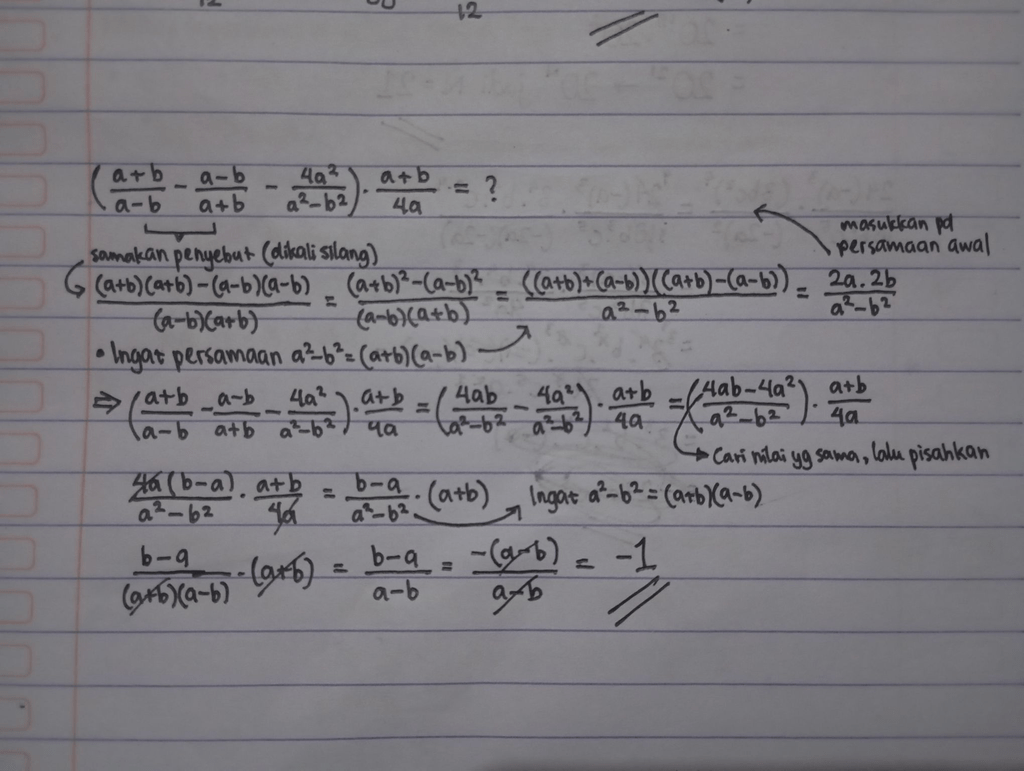 12 12
(a+b/a-b - a-b/a+b - 4a²/a²-b²) . a+b/4a = ?
masukkan pd
persamaan awal
samakan penyebut (dikali silang)
(a+b)(a+b)-(a-b)(a-b)/(a-b)(a+b) = (a+b)²-(a-b)²/(a-b)(a+b) = ((a+b)+(a-b))((a+b)-(a-b))/a²-b² = 2a . 2b/a²-b²
• Ingat persamaan a²-b²=(a+b)(a-b)
⇒ (a+b/a-b - a-b/a+b - 4a²/a²-b²) . a+b/4a = (4ab/a²-b² - 4a²/a²-b²) . a+b/4a = (4ab-4a²/a²-b²) . a+b/4a
Cari nilai yg sama, lalu pisahkan
4a(b-a)/a²-b² . a+b/4a = b-a/a²-b² . (a+b) Ingat a²-b²=(a+b)(a-b)
b-a/(a+b)(a-b) . (a+b) = b-a/a-b = -(a-b)/a-b = -1